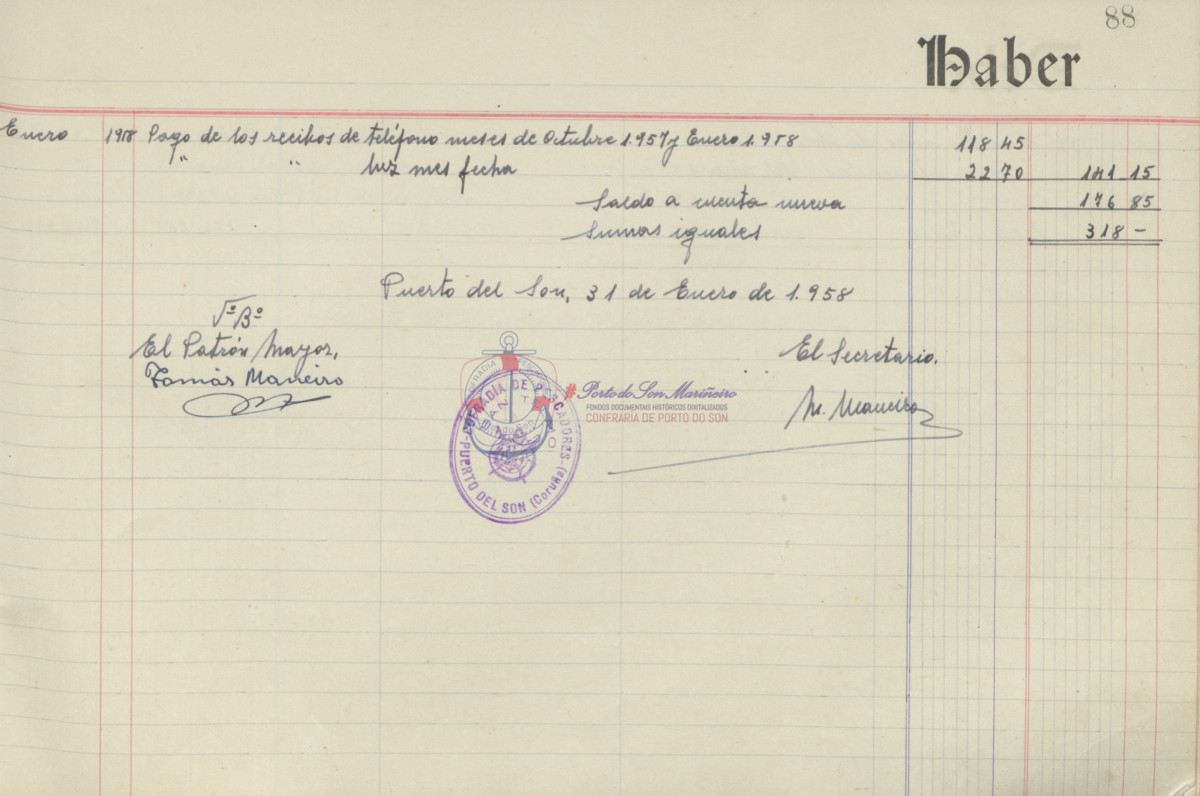 88
Haber
Enero 1958 Pago de los recibos de teléfono meses de Octubre 1.957 y Enero 1.958 118 45
" " luz mes fecha 22 70 141 15
Saldo a cuenta nueva 176 85
Sumas iguales 318 -
Puerto del Son, 31 de Enero de 1.958
Vº Bº
El Patrón Mayor,
Tomás Maneiro
El Secretario.
M. Maneiro
COFRADÍA DE PESCADORES
-PUERTO DEL SON (Coruña)-
Porto do Son Mariñeiro
FONDOS DOCUMENTAIS HISTÓRICOS DIXITALIZADOS
CONFRARÍA DE PORTO DO SON